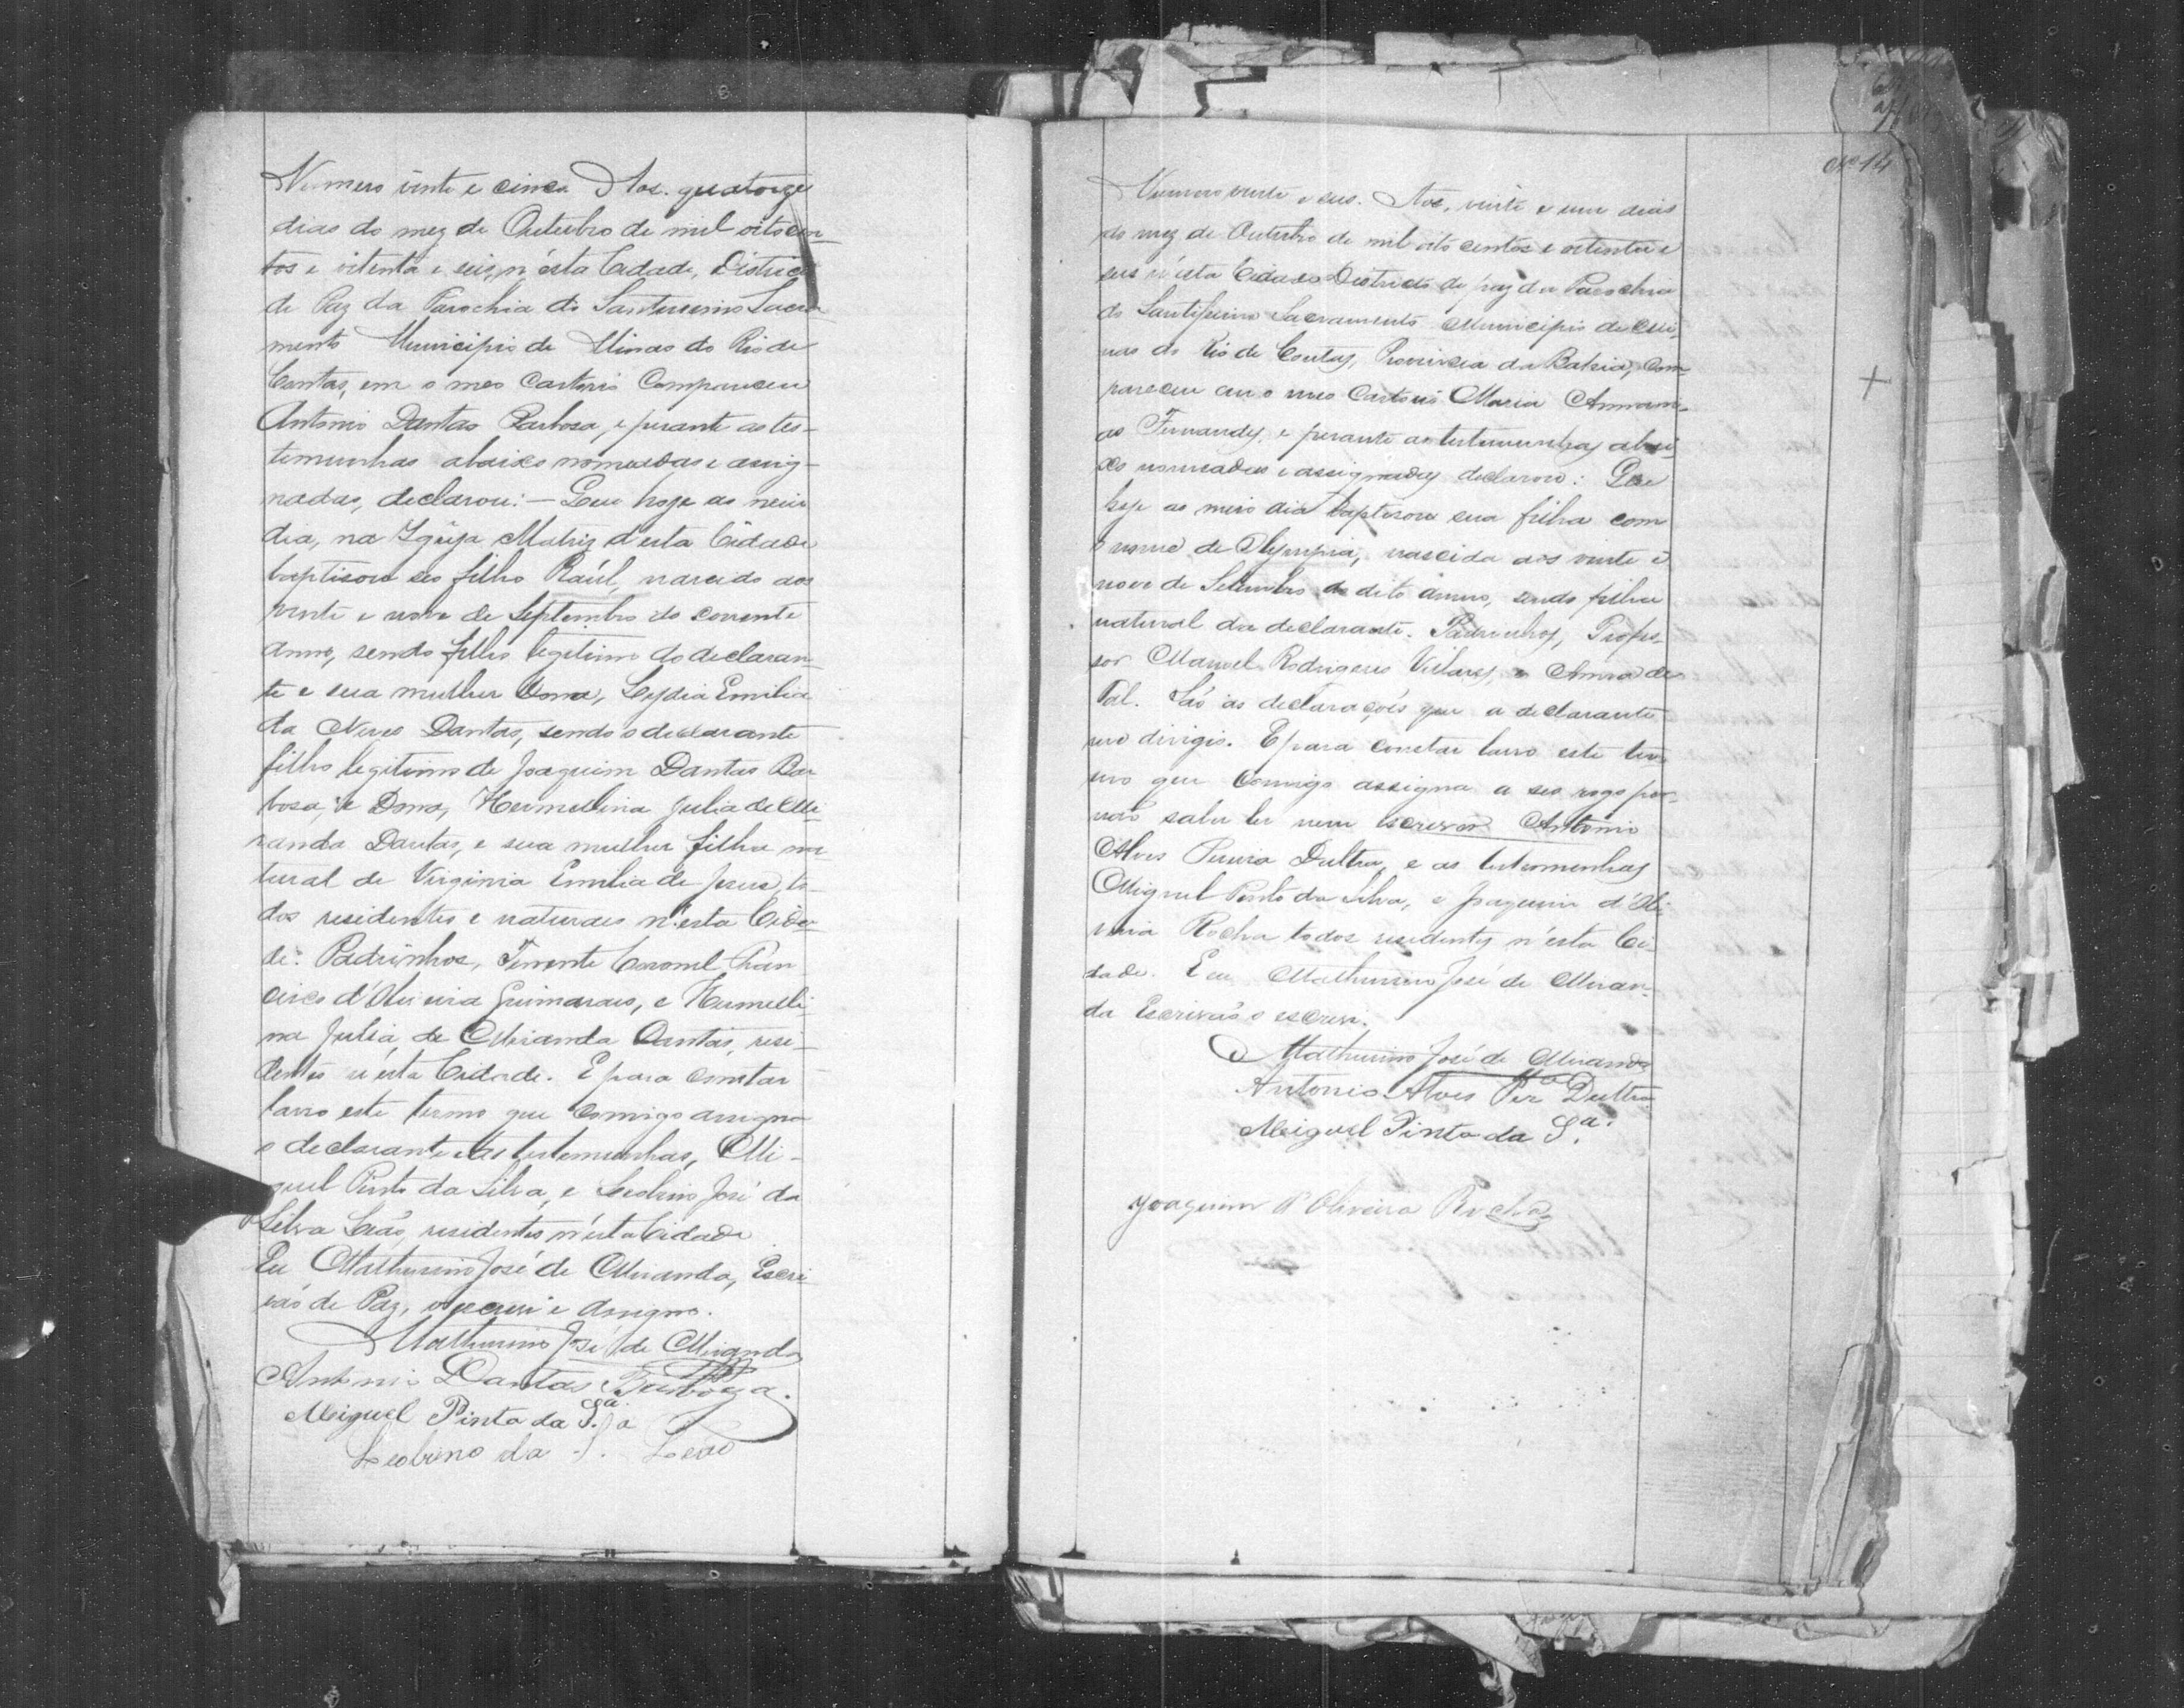 Numero vinte e cinco Aos. quatorze
dias do mez de Outubro de mil oitocen-
tos e oitenta e seis, n'esta Cidade, Districto
de Paz da Parochia do Santissimo Sacra-
mento Municipio de Minas do Rio de
Contas, em o meo Cartorio Compareceu
Antonio Dantas Barbosa, e perante as tes-
temunhas abaixo nomeadas e assig-
nadas, declarou: — Que hoje ao meio
dia, na Igreja Matriz d'esta Cidade
baptisou seo filho Raúl, nascido aos
vinte e nove de Septembro do corrente
anno, sendo filho legitimo do declaran-
te e sua mulher Dona, Lydia Emilia
da Neves Dantas, sendo o declarante
filho legitimo de Joaquim Dantas Bar
bosa, e Dona, Hermellina Julia de Mi-
randa Dantas, e sua mulher filha na
tural de Virginia Emilia de Jesus, to-
dos residentes e naturaes n'esta Cida-
de. Padrinhos, Tenente Coronel Fran
cisco d'Oliveira Guimaraes, e Hermelli
na Julia, de Miranda Dantas, resi-
dentes n'esta Cidade. E para constar
lavro este termo que comigo assigna
o declarante e as testemunhas, Mi-
guel Pinto da Silva, e Leobino José da
Silva Leão, residentes n'esta Cidade
Eu Mathurino José de Miranda, Escri
vão de Paz, o escrevi e assigno.
Mathurino José de Miranda
Antonio Dantas Barboza.
Miguel Pinto da S.ª
Leobino da S. Leão
Nº 14
Numero vinte e seis. Aos, vinte e um dias
do mez de Outubro de mil oito centos e oitenta e
seis n'esta Cidade Districto de paz da Parochia
do Santissimo Sacramento Municipio de Mi-
nas do Rio de Contas, Provincia da Bahia, com-
pareceu em o meo Cartorio Maria
as Fernandes, e perante as testemunhas abai-
xo nomeadas e assignadas declarou: Que
hoje ao meio dia baptisou sua filha com
o nome de Olympia, nascida aos vinte e
nove de Setembro do dito anno, sendo filha
natural da declarante. Padrinhos, Profes-
sor Manoel Rodrigues Villares, e Anna de
Tal. São as declarações que a declarante
me dirigio. E para constar lavro este ter-
mo que comigo assigna a seo rogo por
não saber ler nem escrever Antonio
Alves Pereira Dultra, e as testemunhas
Miguel Pinto da Silva, e Joaquim d'Oli-
veira Rocha todos residentes n'esta Ci-
dade. Eu Mathurino José de Miran-
da Escrivão o escrevi.
Mathurino José de Miranda
Antonio Alves Per.ª Dultra
Miguel Pinto da S.ª
Joaquim d'Oliveira Rocha